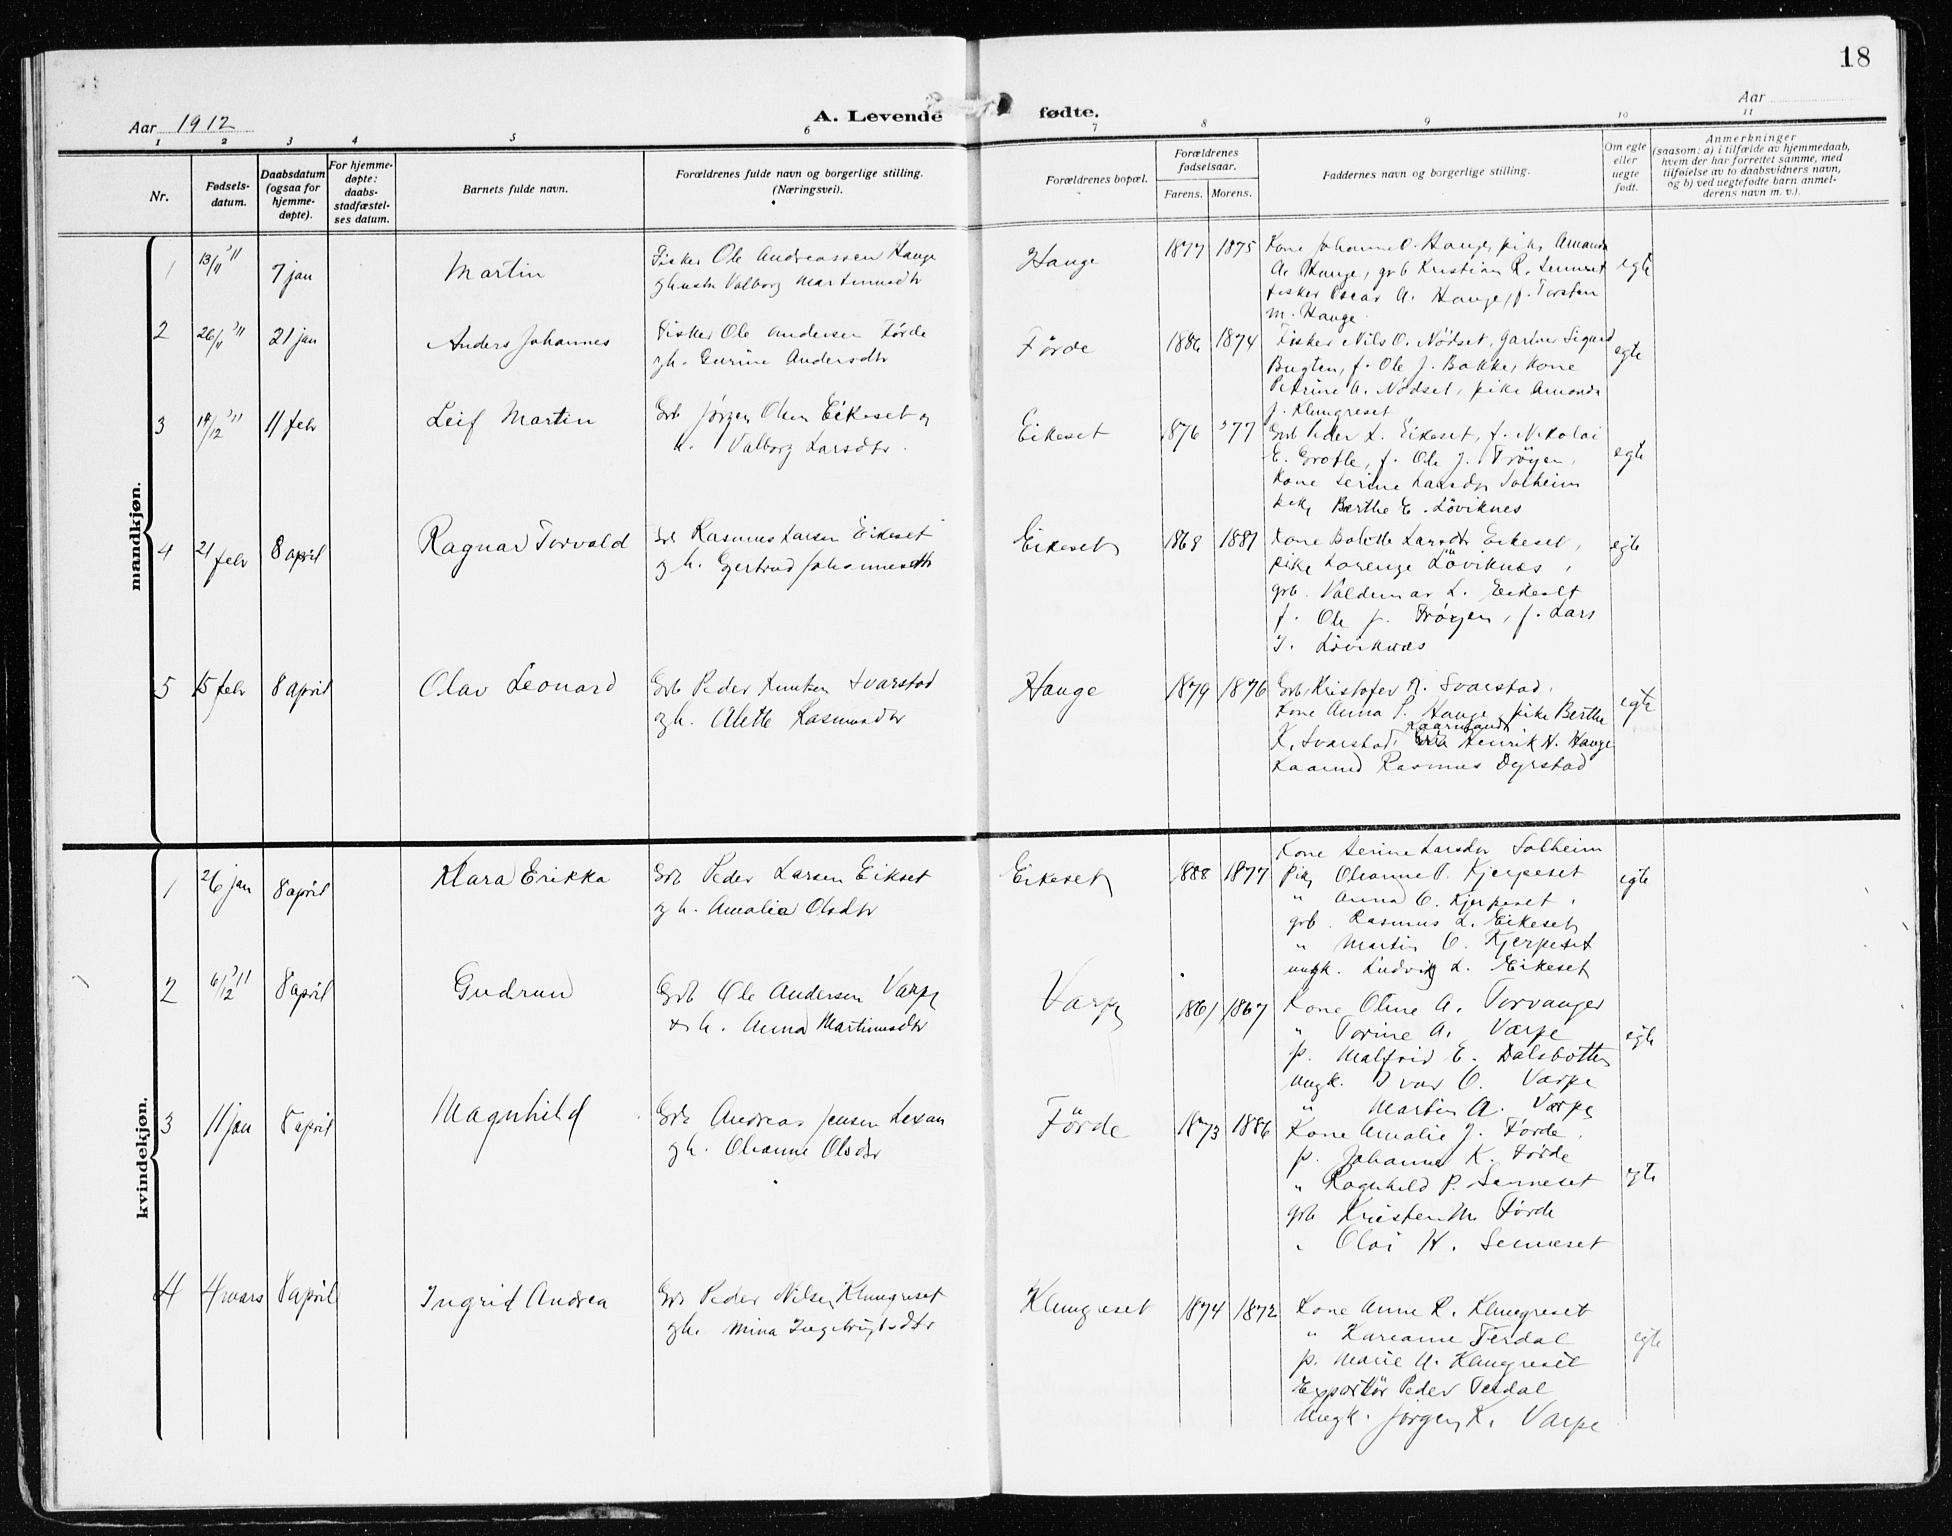 18
Aar 1912
A. Levende fødte.
Aar
1 2 3 4 5 6 7 8 9 10 11
Nr.
Fødsels-
datum.
Daabsdatum
(ogsaa for
hjemme-
døpte).
For hjemme-
døpte:
daabs-
stadfæstel-
ses datum.
Barnets fulde navn.
Forældrenes fulde navn og borgerlige stilling.
(Næringsvei).
Forældrenes bopæl.
Forældrenes
fødselsaar.
Farens. Morens.
Faddernes navn og borgerlige stilling.
Om egte
eller
uegte
født.
Anmerkninger
(saasom: a) i tilfælde av hjemmedaab,
hvem der har forrettet samme, med
tilføielse av to daabsvidners navn,
og b) ved uegtefødte barn anmel-
derens navn m. v.).
mandkjøn.
1 13/11 '11 7 jan Martin
Fisker Ole Andreassen Hauge
og hustr Valborg Martinusdtr
Hauge 1877 1875
Kone Johanne O. Hauge, pike Amanda
A. Hauge, grb Kristian R. Senneset
fisker Oscar A. Hauge, f. Torsten
M. Hauge.
egte
2 26/11 '11 21 jan Anders Johannes
Fisker Ole Andersen Førde
og h. Gurine Andersdtr
Førde 1886 1874
Fisker Nils O. Nødset, Gartner Sigurd
Bugten, f. Ole J. Bakke, Kone
Petrine A. Nødset, pike Amanda
J. Klungreset
egte
3 14/12 '11 11 febr Leif Martin
Grb Jørgen Olsen Eikeset og
h. Valborg Larsdtr.
Eikeset 1876 '77
Grb Peder L. Eikeset, f. Nikolai
E. Grotle, f. Ole J. Trøyen,
Kone Serine Larsdtr Solheim
pike Berthe E. Løviknes
egte
4 21 febr 8 april Ragnar Torvald
Grb Rasmus Larsen Eikeset
og h. Gjertrud Johannesdtr
Eikeset 1868 1881
Kone Bolette Larsdtr Eikeset,
pike Lorenze Løviknæs,
grb. Valdemar L. Eikeset
f. Ole J. Trøyen, f. Lars
I. Løviknæs
egte
5 15 febr 8 april Olav Leonard
Grb Peder Knutsen Svarstad
og h. Alette Rasmusdtr
Hauge 1879 1876
Grb Kristofer A. Svarstad,
Kone Anna P. Hauge, pike Berthe
K. Svarstad, Kaarmand Henrik N. Hauge
Kaarmd Rasmus Dyrstad
egte
kvindekjøn.
1 26 jan 8 april Klara Erikka
Grb Peder Larsen Eikset
og h. Amalie Olsdtr
Eikeset 1888 1877
Kone Serine Larsdtr Solheim
pike Olianne P. Kjerpeset
" Anna O. Kjerpeset,
grb. Rasmus L. Eikeset
" Martin O. Kjerpeset
ungk. Ludvig L. Eikeset
egte
2 6/12 '11 8 april Gudrun
Grb Ole Andersen Varpe
& h. Anna Martinusdtr
Varpe 1861 1867
Kone Oline A. Torvanger
" Torine A. Varpe
p. Malfrid E. Dalsbotten
ungk. Ivar O. Varpe
" Martin A. Varpe
egte
3 11 jan 8 april Magnhild
Grb Andreas Jensen Lexau
og h. Olianne Olsdtr
Førde 1873 1886
Kone Amalie J. Førde,
p. Johanne K. Førde
" Ragnhild P. Senneset
grb Kristen M. Førde
" Olai H. Senneset
egte
4 4 mars 8 april Ingrid Andrea
Grb Peder Nilsen Klungreset
og h. Mina Ingebrigtsdtr
Klungreset 1874 1872
Kone Anne R. Klungreset
" Karianne Terdal
p. Marie N. Klungreset
Exportør Peder Terdal
Ungk. Jørgen K. Varpe
egte